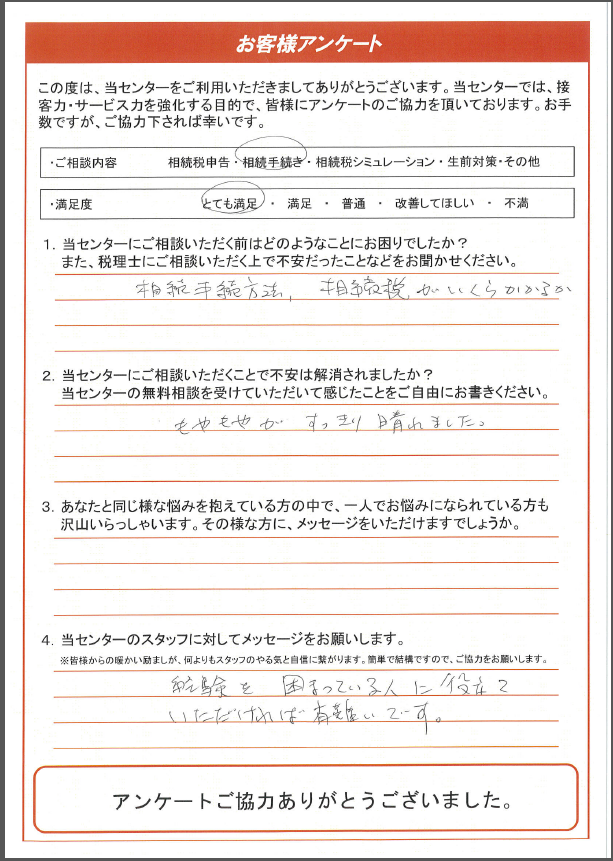 お客様アンケート
この度は、当センターをご利用いただきましてありがとうございます。当センターでは、接
客力・サービス力を強化する目的で、皆様にアンケートのご協力を頂いております。お手
数ですが、ご協力下されば幸いです。
・ご相談内容　相続税申告・相続手続き・相続税シミュレーション・生前対策・その他
・満足度　とても満足 ・ 満足 ・ 普通 ・ 改善してほしい ・ 不満
1. 当センターにご相談いただく前はどのようなことにお困りでしたか？
また、税理士にご相談いただく上で不安だったことなどをお聞かせください。
相続手続方法, 相続税がいくらかかるか
2. 当センターにご相談いただくことで不安は解消されましたか？
当センターの無料相談を受けていただいて感じたことをご自由にお書きください。
もやもやが すっきり 晴れました。
3. あなたと同じ様な悩みを抱えている方の中で、一人でお悩みになられている方も
沢山いらっしゃいます。その様な方に、メッセージをいただけますでしょうか。
4. 当センターのスタッフに対してメッセージをお願いします。
※皆様からの暖かい励ましが、何よりもスタッフのやる気と自信に繋がります。簡単で結構ですので、ご協力をお願いします。
経験を 困まっている人に役立て
いただければ有難いです。
アンケートご協力ありがとうございました。